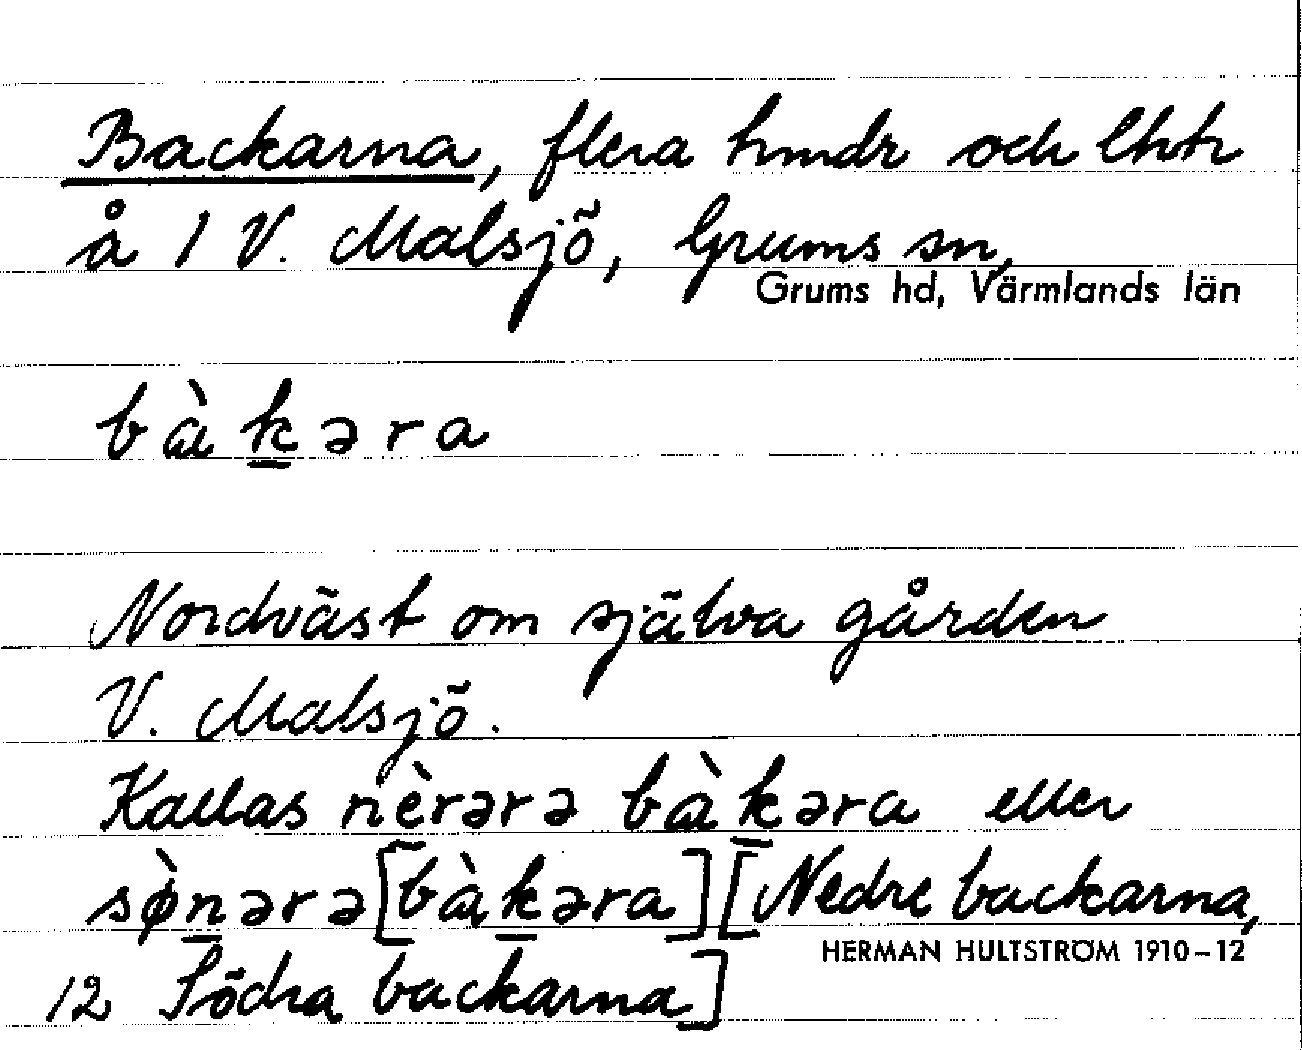 Backarna, flera hmdr och lhtr
å 1 V. Malsjö, Grums sn,
Grums hd, Värmlands län
bàk̲əra
Nordväst om själva gården
V. Malsjö.
Kallas nèrərə bàk̲əra eller
sø̀n̲ərə [bàk̲əra] [Nedre backarna,
HERMAN HULTSTRÖM 1910–12
12 Södra backarna]